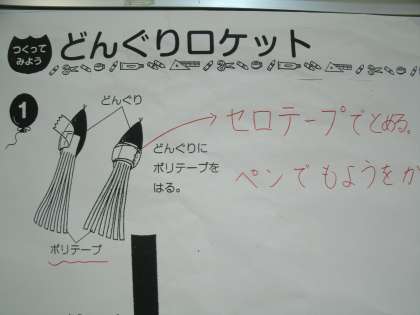 つくって
みよう
どんぐりロケット
1
どんぐり
セロテープでとめる。
どんぐりに
ポリテープを
はる。
ペンでもようをか
ポリテープ